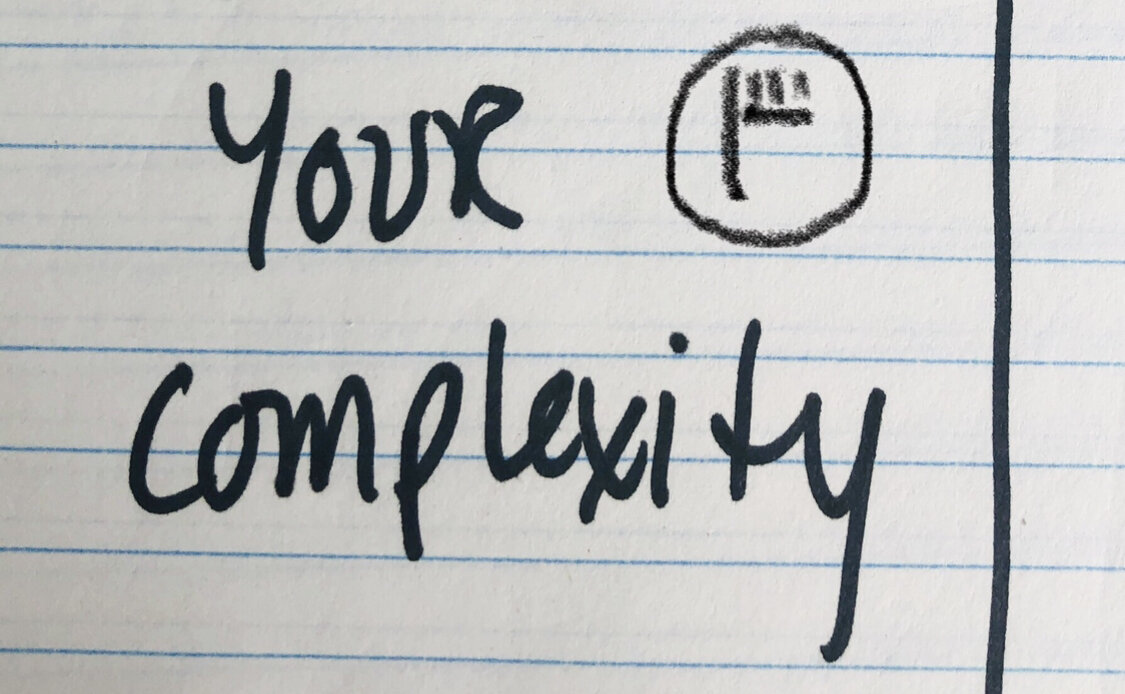 Your
complexity